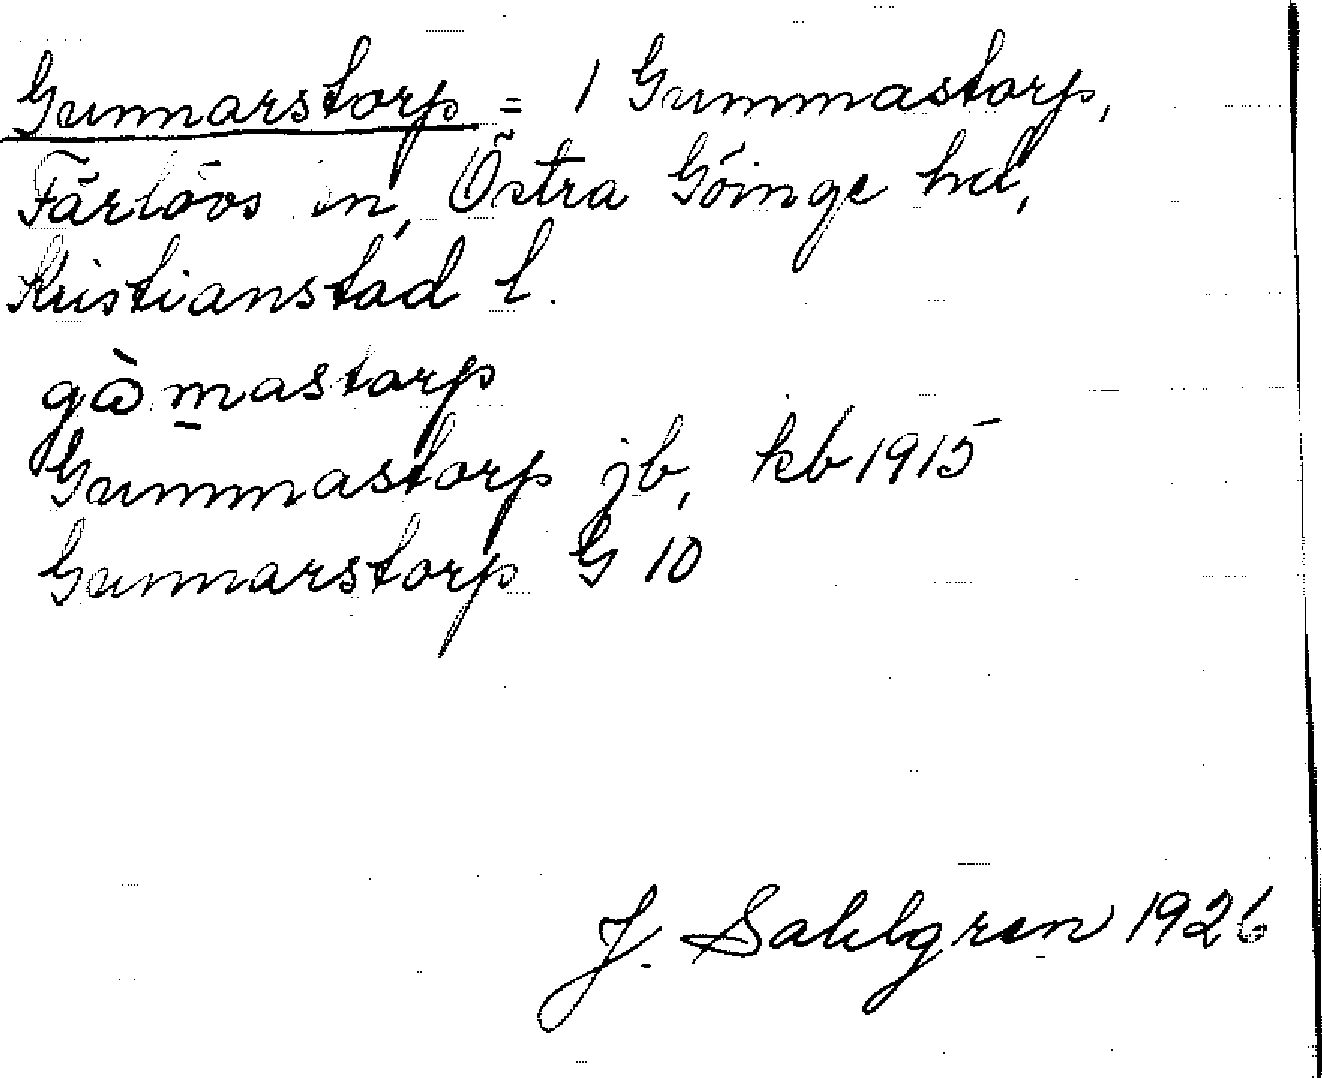 Gunnarstorp = 1 Gummastorp,
Färlövs sn, Östra Göinge hd,
Kristianstad l.
gòmastorp
Gummastorp jb, kb 1915
Gunnarstorp G 10
J. Sahlgren 1926